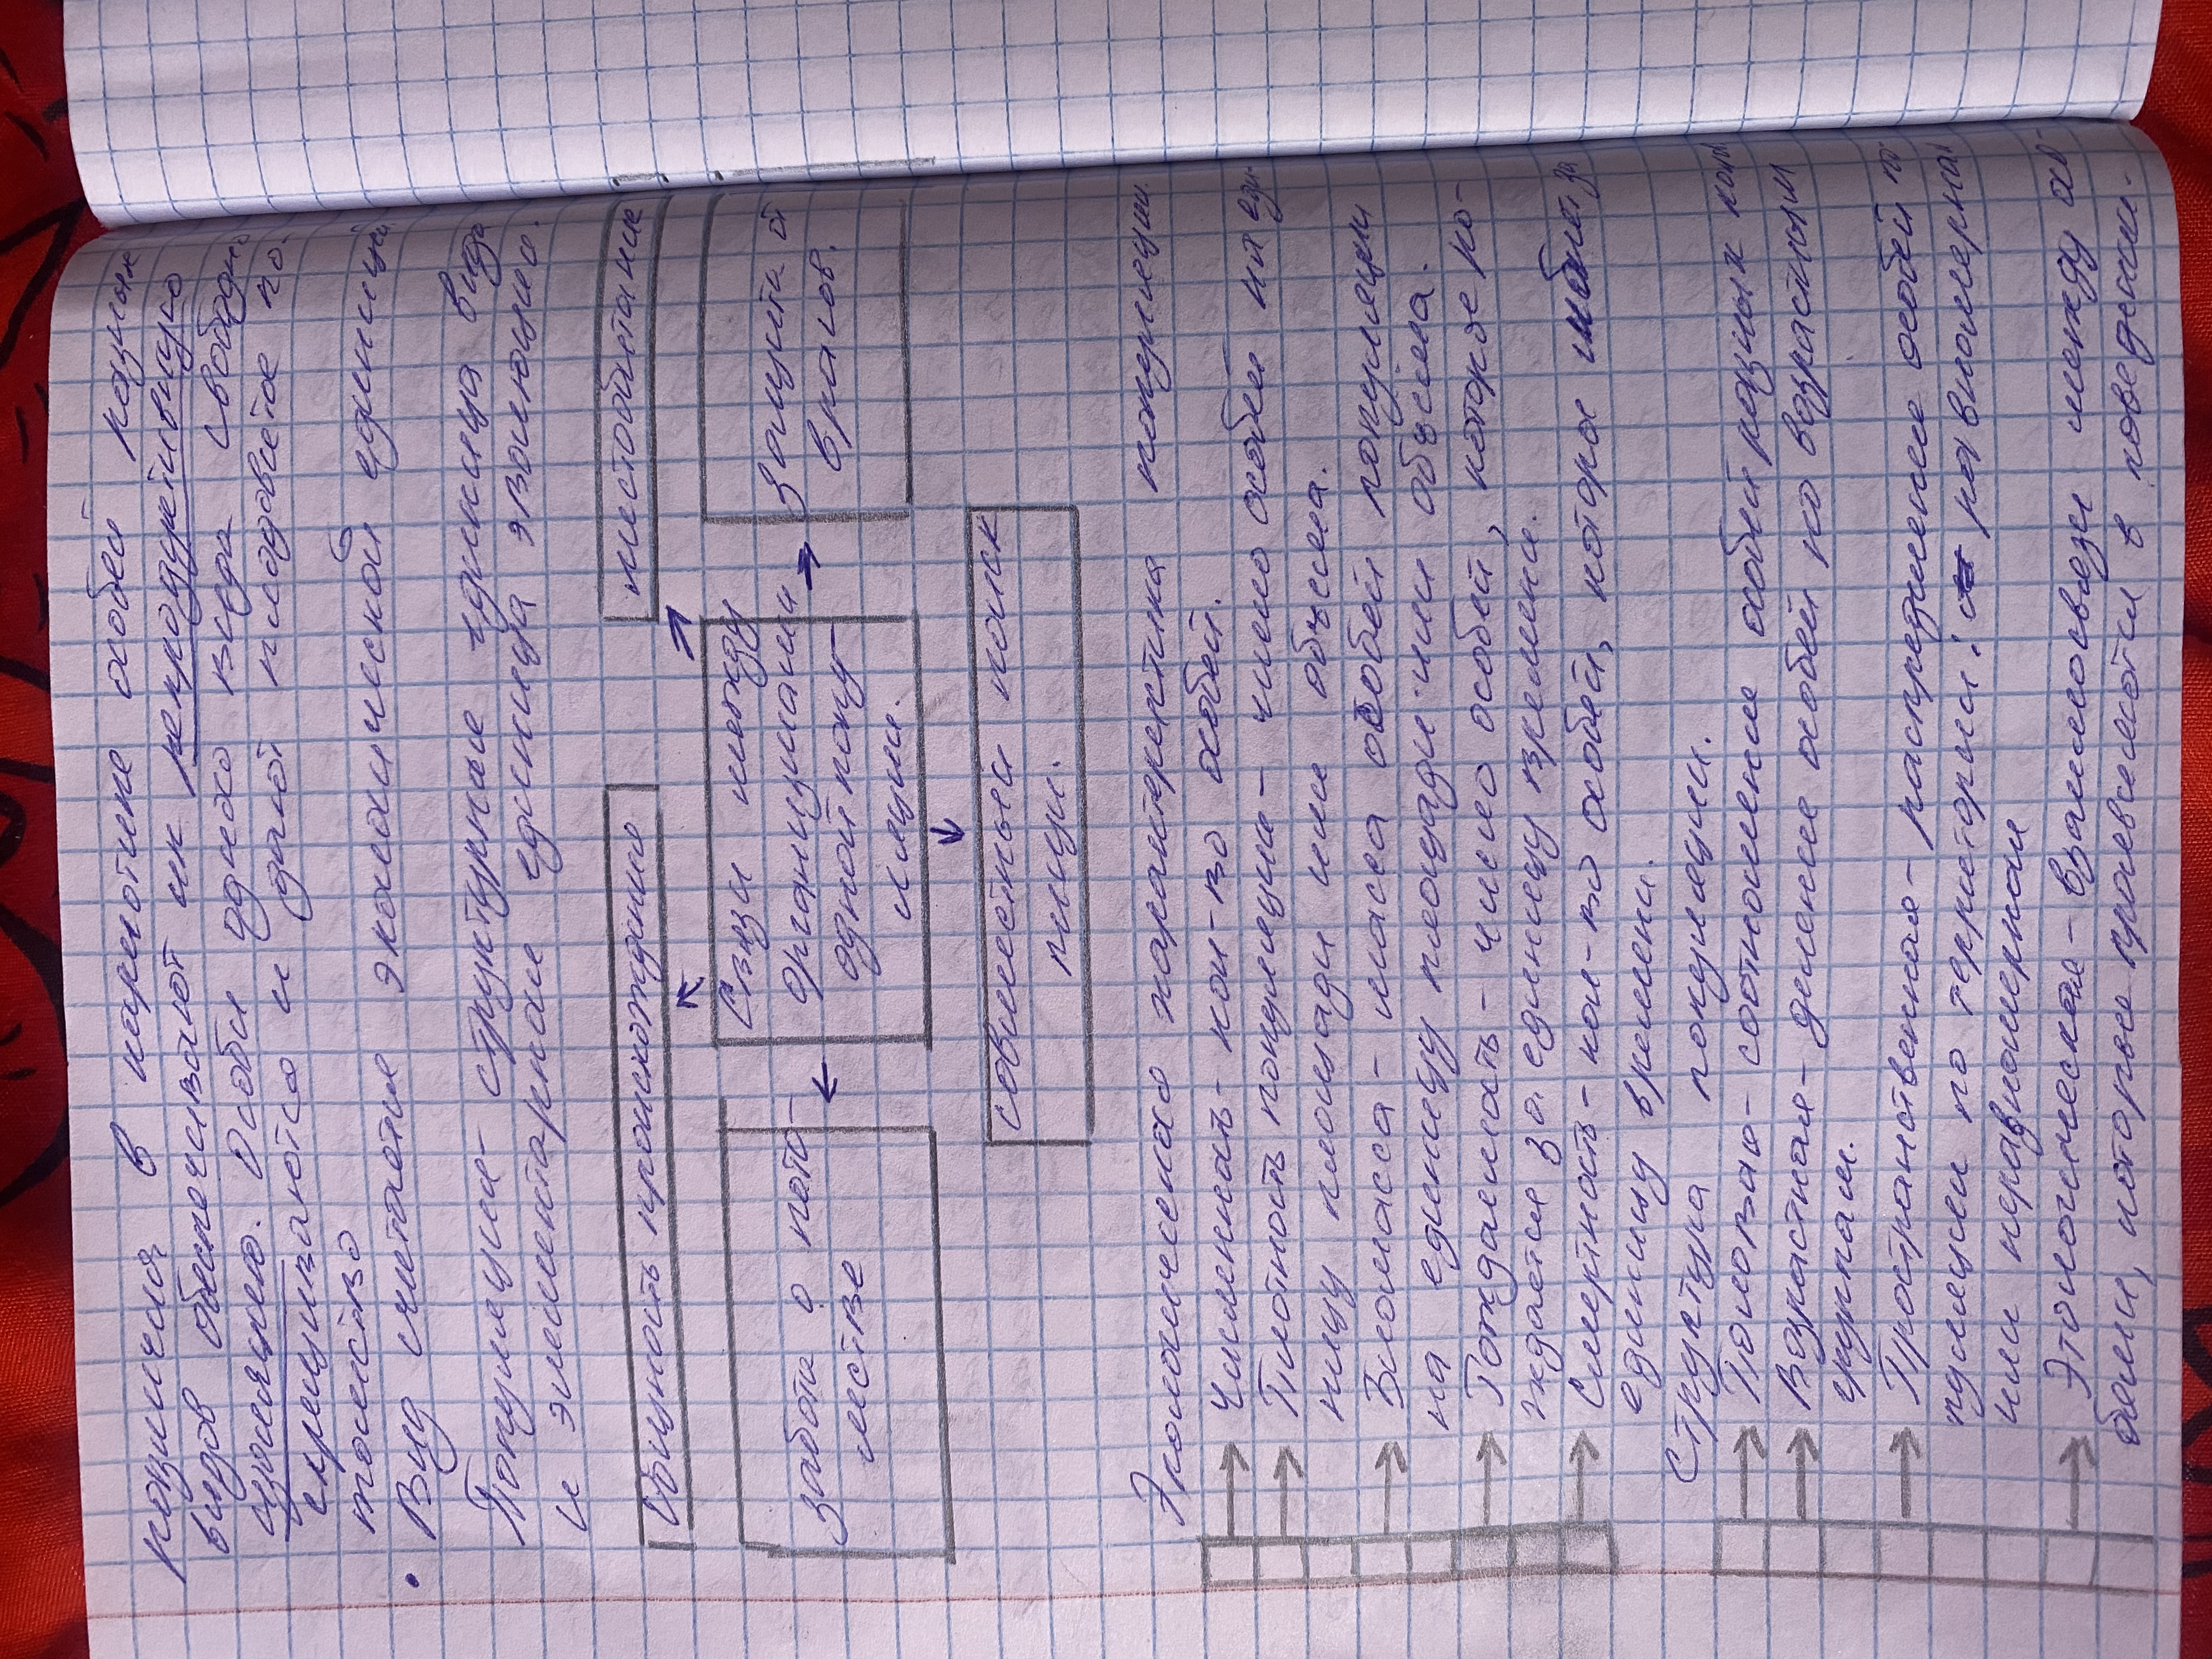 позициям в кариотипе особей разных
видов обеспечивают их репродуктивную
изоляцию. Особи одного вида свободно
скрещиваются и дают плодовитое по-
томство
• Вид считается экологической единицей
Популяция- структурные единица вида
и элементарная единица эволюции.
Общность происхождению
местообитание
забота о пото-
мстве
Связи между
организмами
одной попу-
ляции.
Защита от
врагов.
совместный поиск
пищи.
Экологическая характеристика популяции.
→ Численность- кол-во особей.
→ Плотность популяции- число особей на еди-
ницу площади или объема.
→ Биомасса- масса особей популяции
на единицу площади или объема.
→ Рождаемость- число особей, которое ро-
ждается за единицу времени.
→ Смертность- кол-во особей, которое погибает за
единицу времени.
Структура популяции.
→ Половая- соотношение особей разных
→ Возрастная- деление особей по возрастным
группам.
→ Пространственная- распределение особей по-
пуляции по территории: равномерная
или неравномерная
→ Этологическая- взаимосвязи между осо-
бями, которые проявляются в поведении.